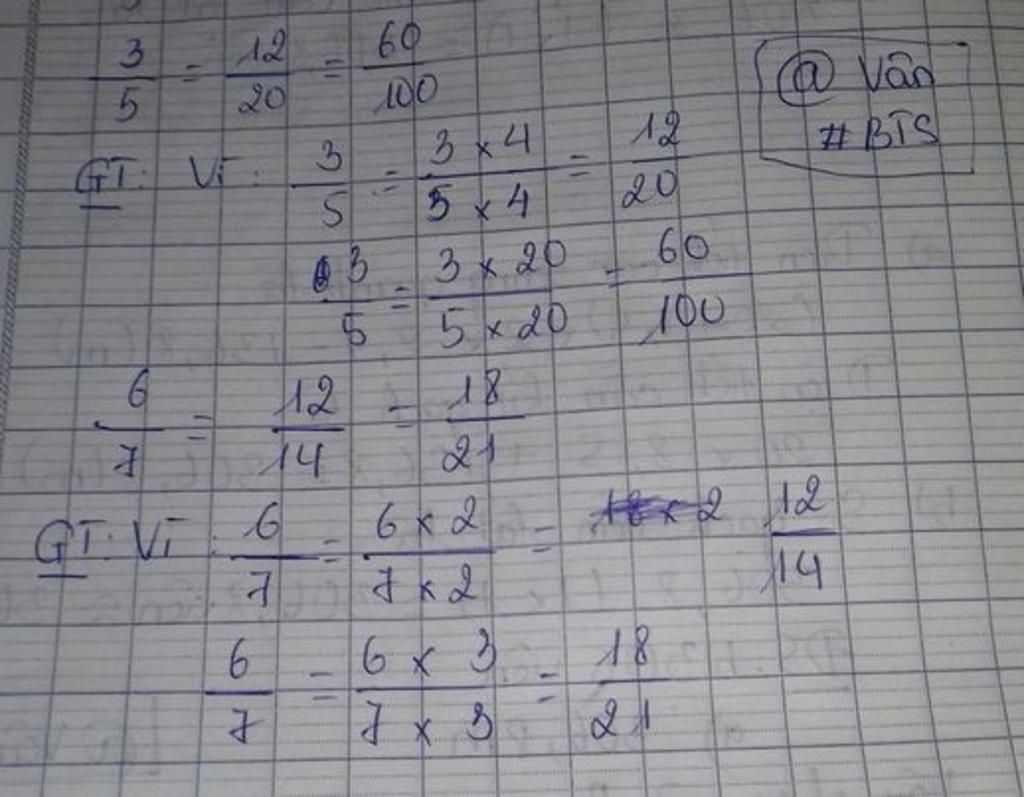 3/5 = 12/20 = 60/100
@ Vân
#BTS
GT: Vì: 3/5 = 3 x 4 / 5 x 4 = 12/20
3/5 = 3 x 20 / 5 x 20 = 60/100
6/7 = 12/14 = 18/21
GT: Vì: 6/7 = 6 x 2 / 7 x 2 = 12/14
6/7 = 6 x 3 / 7 x 3 = 18/21